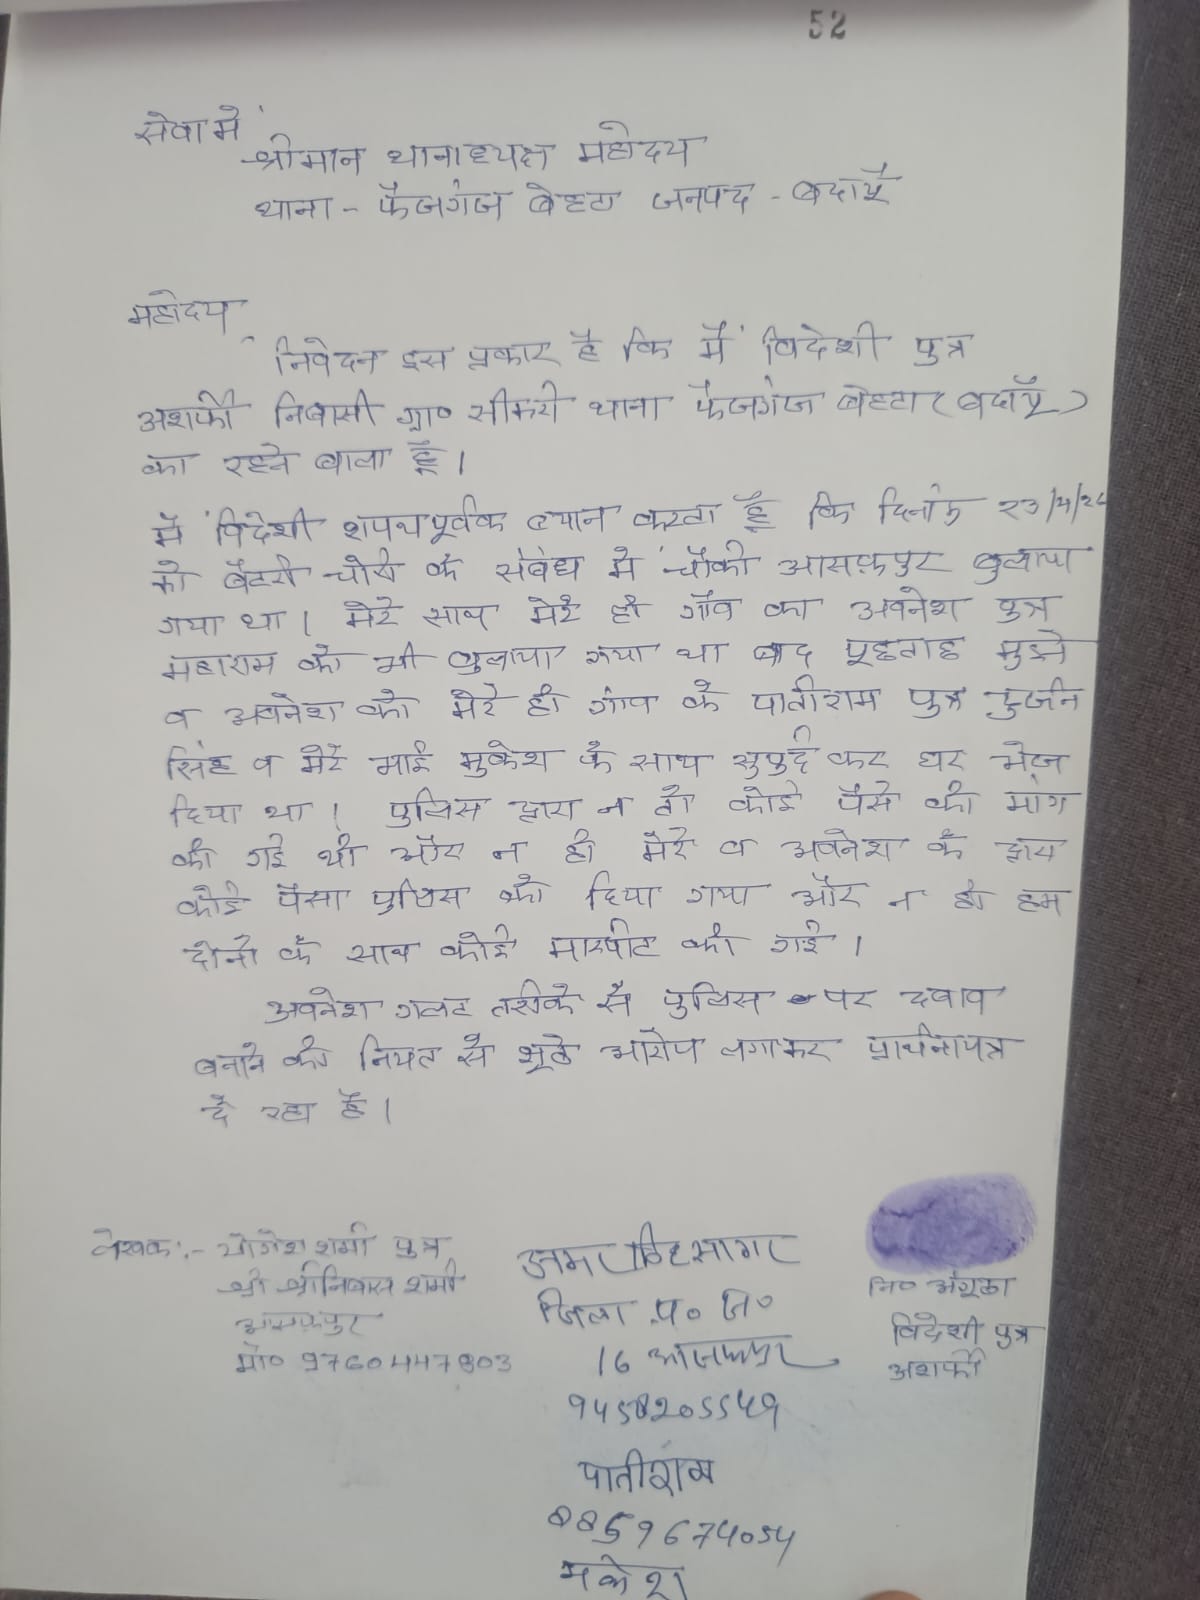 52
सेवा में
श्रीमान थानाध्यक्ष महोदय
थाना - फैजगंज बेहटा जनपद - बदायूँ
महोदय,
निवेदन इस प्रकार है कि मैं विदेशी पुत्र
अशर्फी निवासी ग्रा० सीकरी थाना फैजगंज बेहटा (बदायूँ)
का रहने वाला हूँ।
मैं विदेशी शपथपूर्वक ब्यान करता हूँ कि दिनांक २३/४/२
को बैटरी चोरी के संबंध में चौकी आसफपुर बुलाया
गया था। मेरे साथ मेरे ही गाँव का अवनेश पुत्र
महाराम को भी बुलाया गया था बाद पूछताछ मुझे
व अवनेश को मेरे ही गांव के पातीराम पुत्र दुर्जन
सिंह व मेरे भाई मुकेश के साथ सुपुर्द कर घर भेज
दिया था। पुलिस द्वारा न तो कोई पैसे की मांग
की गई थी और न ही मेरे व अवनेश के द्वारा
कोई पैसा पुलिस को दिया गया और न ही हम
दोनों के साथ कोई मारपीट की गई।
अवनेश गलत तरीके से पुलिस पर दवाव
बनाने की नियत से झूठे आरोप लगाकर प्रार्थनापत्र
दे रहा है।
लेखक :- योगेश शर्मा पुत्र
श्री श्रीनिवास शर्मा
आसफपुर
मो० 9760447803
सागर
जिला प० जि०
16 आसफपुर
9458205549
पातीराम
8859674054
मुकेश
नि० अंगूठा
विदेशी पुत्र
अशर्फी